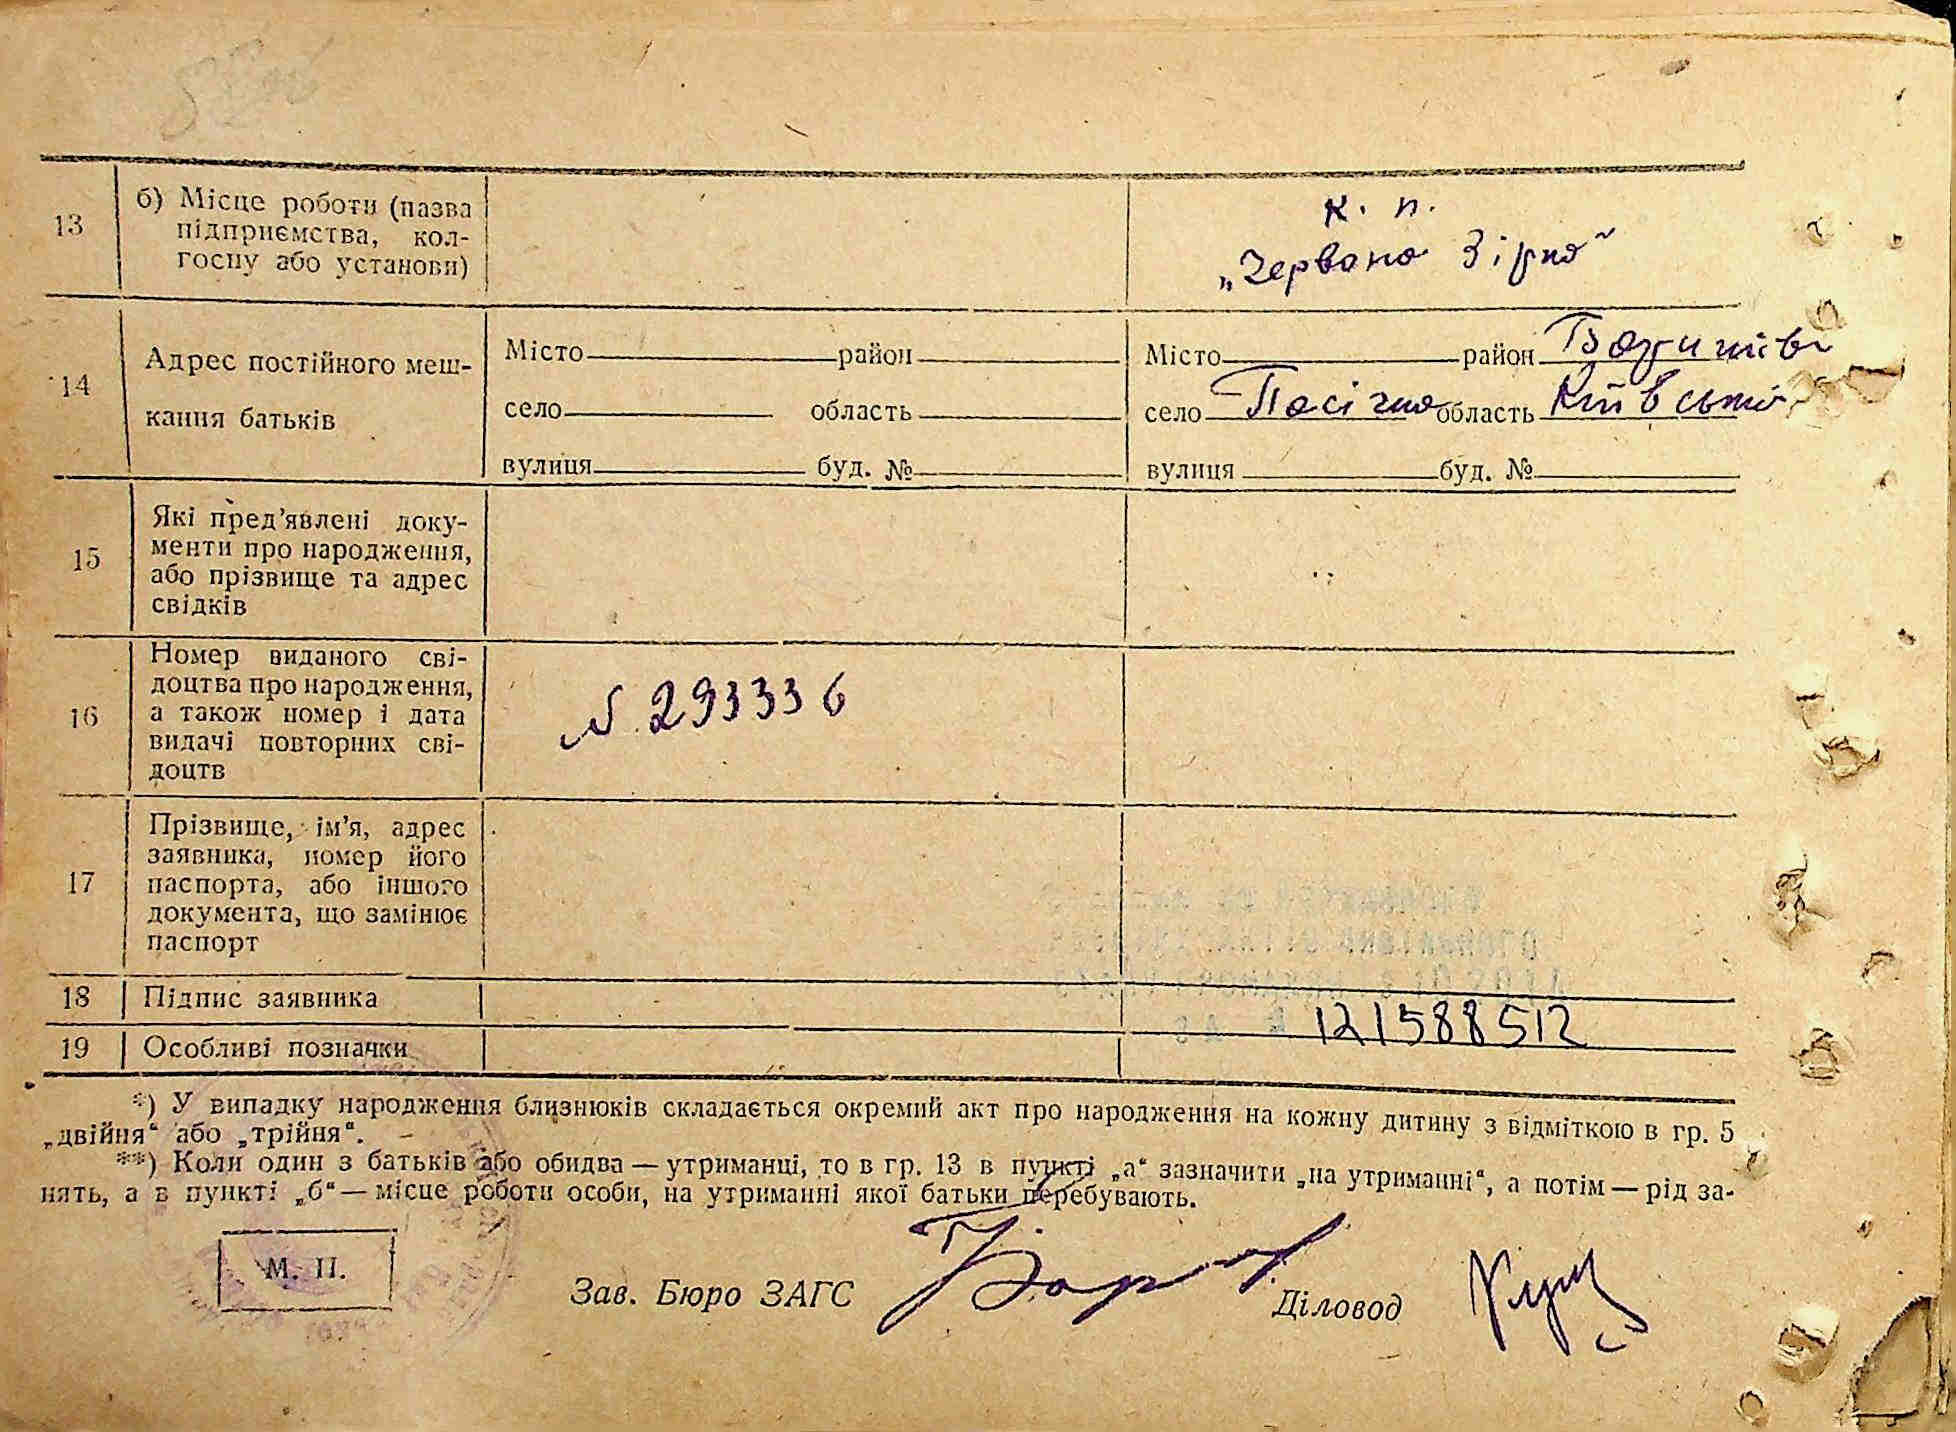 13 б) Місце роботи (назва
підприємства, кол-
госпу або установи)
к. п.
„Червона Зірка“
14 Адрес постійного меш-
кання батьків
Місто район
село область
вулиця буд. №
Місто район
село Пасічна область Київської
вулиця буд. №
15 Які пред’явлені доку-
менти про народження,
або прізвище та адрес
свідків
16 Номер виданого сві-
доцтва про народження,
а також номер і дата
видачі повторних сві-
доцтв
N 293336
17 Прізвище, ім’я, адрес
заявника, номер його
паспорта, або іншого
документа, що замінює
паспорт
18 Підпис заявника
19 Особливі позначки
121588512
*) У випадку народження близнюків складається окремий акт про народження на кожну дитину з відміткою в гр. 5
„двійня“ або „трійня“.
**) Коли один з батьків або обидва — утриманці, то в гр. 13 в пункті „а“ зазначити „на утриманні“, а потім — рід за-
нять, а в пункті „б“ — місце роботи особи, на утриманні якої батьки перебувають.
М. П.
Зав. Бюро ЗАГС
Діловод